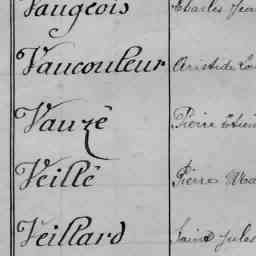 Vaugeois Charles Jean
Vaucouleur Aristide Lou
Vauzé Pierre Etien
Veillé Pierre Ma
Veillard Saint Jules